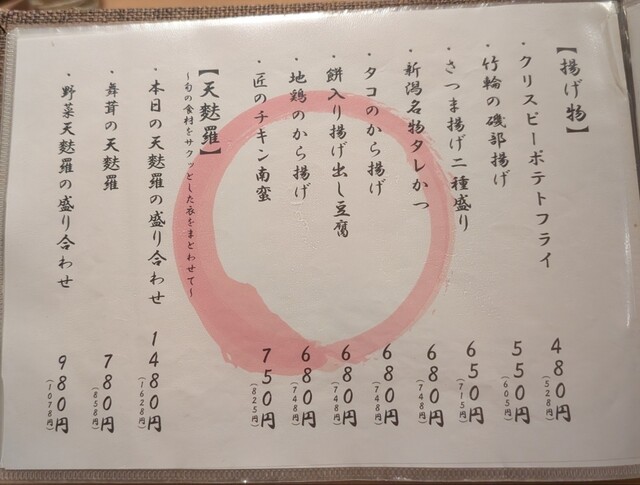 【揚げ物】
・クリスピーポテトフライ 480円（528円）
・竹輪の磯部揚げ 550円（605円）
・さつま揚げ二種盛り 650円（715円）
・新潟名物タレかつ 680円（748円）
・タコのから揚げ 680円（748円）
・餅入り揚げ出し豆腐 680円（748円）
・地鶏のから揚げ 680円（748円）
・匠のチキン南蛮 750円（825円）
【天麩羅】
～旬の食材をサクッとした衣をまとわせて～
・本日の天麩羅の盛り合わせ 1480円（1628円）
・舞茸の天麩羅 780円（858円）
・野菜天麩羅の盛り合わせ 980円（1078円）